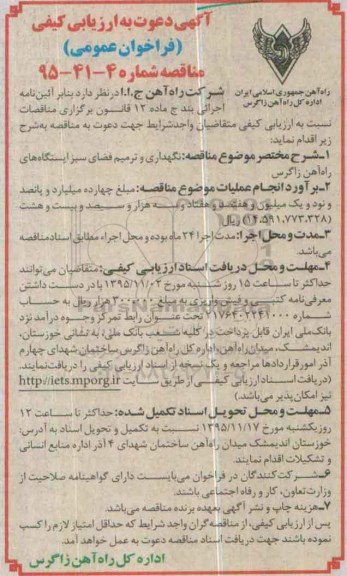 آگهی دعوت به ارزیابی کیفی
(فراخوان عمومی)
مناقصه شماره ۴-۴۱-۹۵
راه آهن جمهوری اسلامی ایران
اداره کل راه آهن زاگرس
شرکت راه آهن ج.ا.ا در نظر دارد بنابر آئین‌نامه
اجرائی بند ج ماده ۱۲ قانون برگزاری مناقصات
نسبت به ارزیابی کیفی متقاضیان واجد شرایط جهت دعوت به مناقصه به شرح
زیر اقدام نماید:
۱-شرح مختصر موضوع مناقصه: نگهداری و ترمیم فضای سبز ایستگاه‌های
راه آهن زاگرس
۲-برآورد انجام عملیات موضوع مناقصه: مبلغ چهارده میلیارد و پانصد
و نود و یک میلیون و هفتصد و هفتاد و سه هزار و سیصد و بیست و هشت
(۱۴،۵۹۱،۷۷۳،۳۲۸) ریال
۳-مدت و محل اجرا: مدت اجرا ۲۴ ماه بوده و محل اجراء مطابق اسناد مناقصه
می‌باشد.
۴-مهلت و محل دریافت اسناد ارزیابی کیفی: متقاضیان می‌توانند
حداکثر تا ساعت ۱۵ روز شنبه مورخ ۱۳۹۵/۱۱/۰۲ با در دست داشتن
معرفی‌نامه کتبی و فیش واریزی به مبلغ ۳۰۰،۰۰۰ هزار ریال به حساب
شماره ۲۱۷۶۴۰۲۲۴۱۰۰۰ تحت عنوان رابط تمرکز وجوه درآمد نزد
بانک ملی ایران قابل پرداخت در کلیه شعب بانک ملی، به نشانی خوزستان،
اندیمشک، میدان راه آهن، اداره کل راه آهن زاگرس ساختمان شهدای چهارم
آذر امور قراردادها مراجعه و یک نسخه از اسناد ارزیابی کیفی را دریافت نمایند.
(دریافت اسناد ارزیابی کیفی از طریق سایت http://iets.mporg.ir
نیز امکان پذیر می‌باشد.)
۵-مهلت و محل تحویل اسناد تکمیل شده: حداکثر تا ساعت ۱۲
روز یکشنبه مورخ ۱۳۹۵/۱۱/۱۷ نسبت به تکمیل و تحویل اسناد به آدرس:
خوزستان اندیمشک میدان راه آهن ساختمان شهدای ۴ آذر اداره منابع انسانی
و تشکیلات اقدام نمایند.
۶-شرکت‌کنندگان در فراخوان می‌بایست دارای گواهینامه صلاحیت از
وزارت تعاون، کار و رفاه اجتماعی باشند.
۷-هزینه چاپ و نشر آگهی بعهده برنده مناقصه می‌باشد.
پس از ارزیابی کیفی، از مناقصه‌گران واجد شرایط که حداقل امتیاز لازم را کسب
نموده باشند جهت دریافت اسناد مناقصه دعوت به عمل خواهد آمد.
اداره کل راه آهن زاگرس